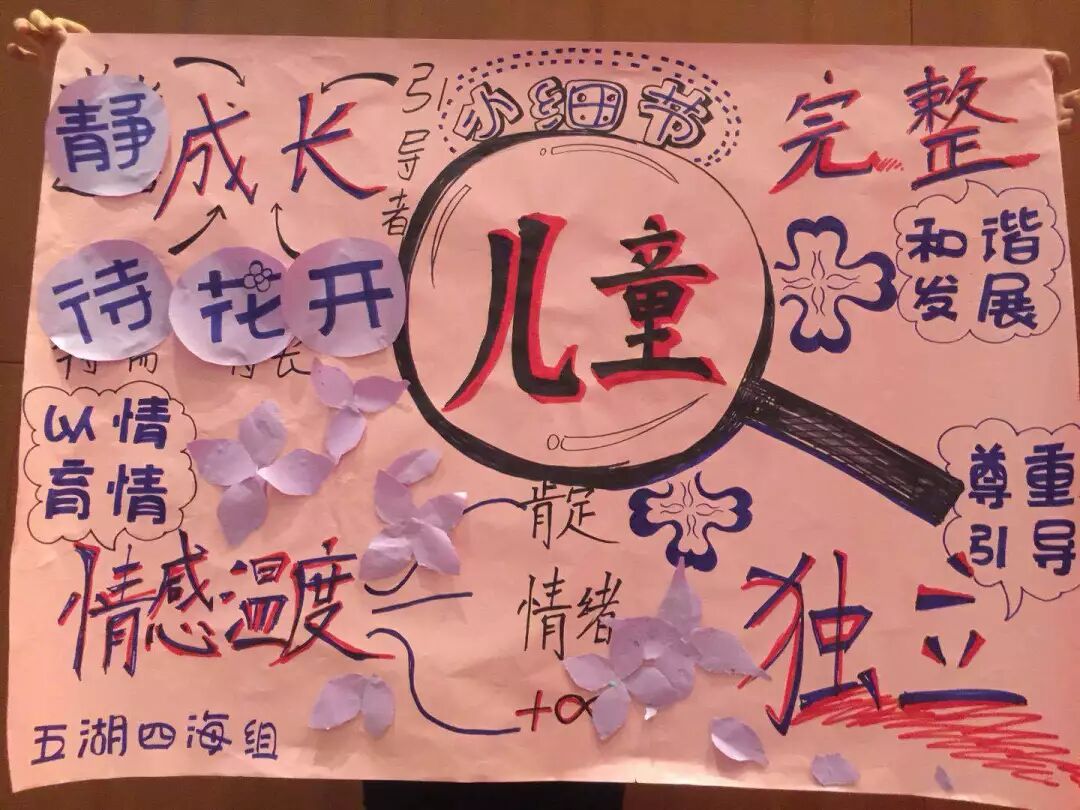 静
成长
引导者
小细节
完整
和谐
发展
待花开
儿童
以情
育情
肯定
尊重
引导
情感温度
情绪
独立
+α
五湖四海组